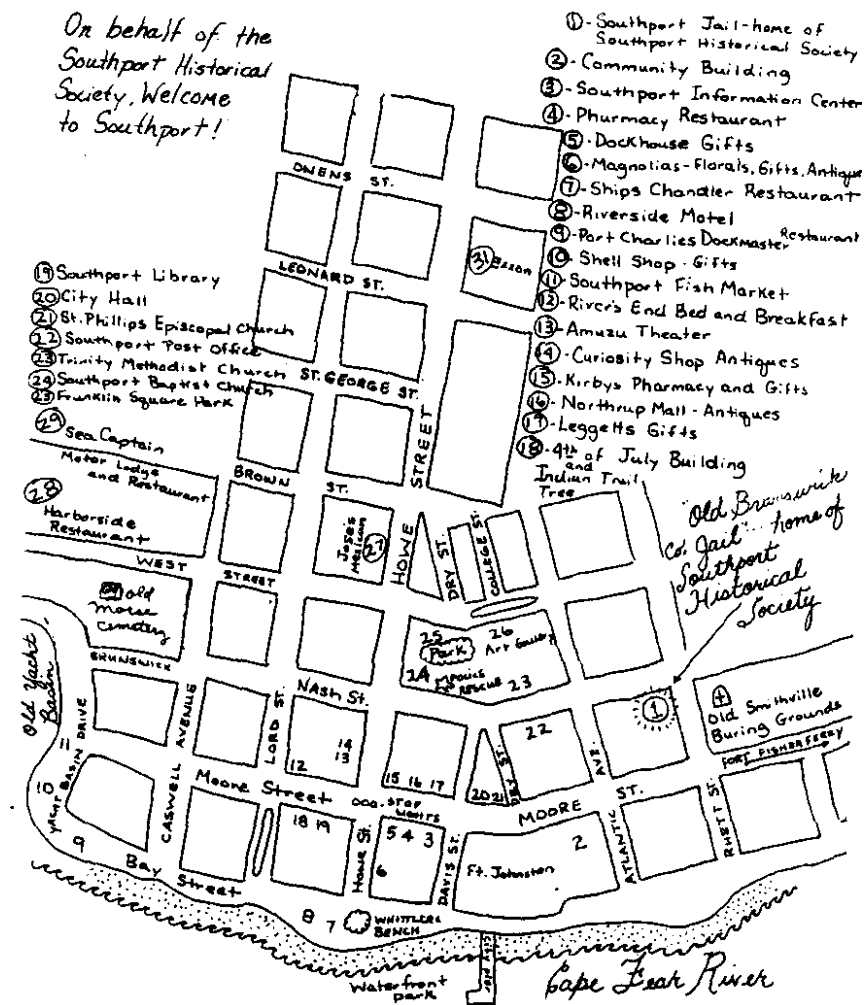 On behalf of the
Southport Historical
Society, Welcome
to Southport!
① - Southport Jail-home of
Southport Historical Society
② - Community Building
③ - Southport Information Center
④ - Pharmacy Restaurant
⑤ - Dockhouse Gifts
⑥ - Magnolias-Florals, Gifts, Antique
⑦ - Ships Chandler Restaurant
⑧ - Riverside Motel
⑨ - Port Charlies Dockmaster Restaurant
⑩ - Shell Shop - Gifts
⑪ - Southport Fish Market
⑫ - River's End Bed and Breakfast
⑬ - Amuzu Theater
⑭ - Curiosity Shop Antiques
⑮ - Kirbys Pharmacy and Gifts
⑯ - Northrup Mall - Antiques
⑰ - Leggetts Gifts
⑱ - 4th of July Building
and
Indian Trail
Tree
⑲ Southport Library
⑳ City Hall
㉑ St. Phillips Episcopal Church
㉒ Southport Post Office
㉓ Trinity Methodist Church
㉔ Southport Baptist Church
㉓ Franklin Square Park
㉙ Sea Captain
Motor Lodge
and Restaurant
㉘
Harborside
Restaurant
OWENS ST.
LEONARD ST.
㉛ Exxon
ST. GEORGE ST.
BROWN ST.
HOWE STREET
Jose's
Mexican
㉗
DRY ST.
COLLEGE ST.
"Old Brunswick
Co. Jail" home of
Southport
Historical
Society
WEST STREET
old
Morse
Cemetery
BRUNSWICK
Old Yacht
Basin
25
Park
26
Art Gallery
24
POLICE
RESCUE
23
NASH ST.
CASWELL AVENUE
LORD ST.
1
Old Smithville
Buring Grounds
FORT FISHER FERRY
YACHT BASIN DRIVE
11
10
9
14
13
12
15 16 17
20 21
DRY ST.
22
ATLANTIC AVE.
Moore Street
STOP
LIGHTS
MOORE ST.
RHETT ST.
18 19
HOWE ST.
5 4 3
6
DAVIS ST.
Ft. Johnston
2
Bay Street
8
7
WHITTLERS
BENCH
City Pier
Waterfront
park
Cape Fear River